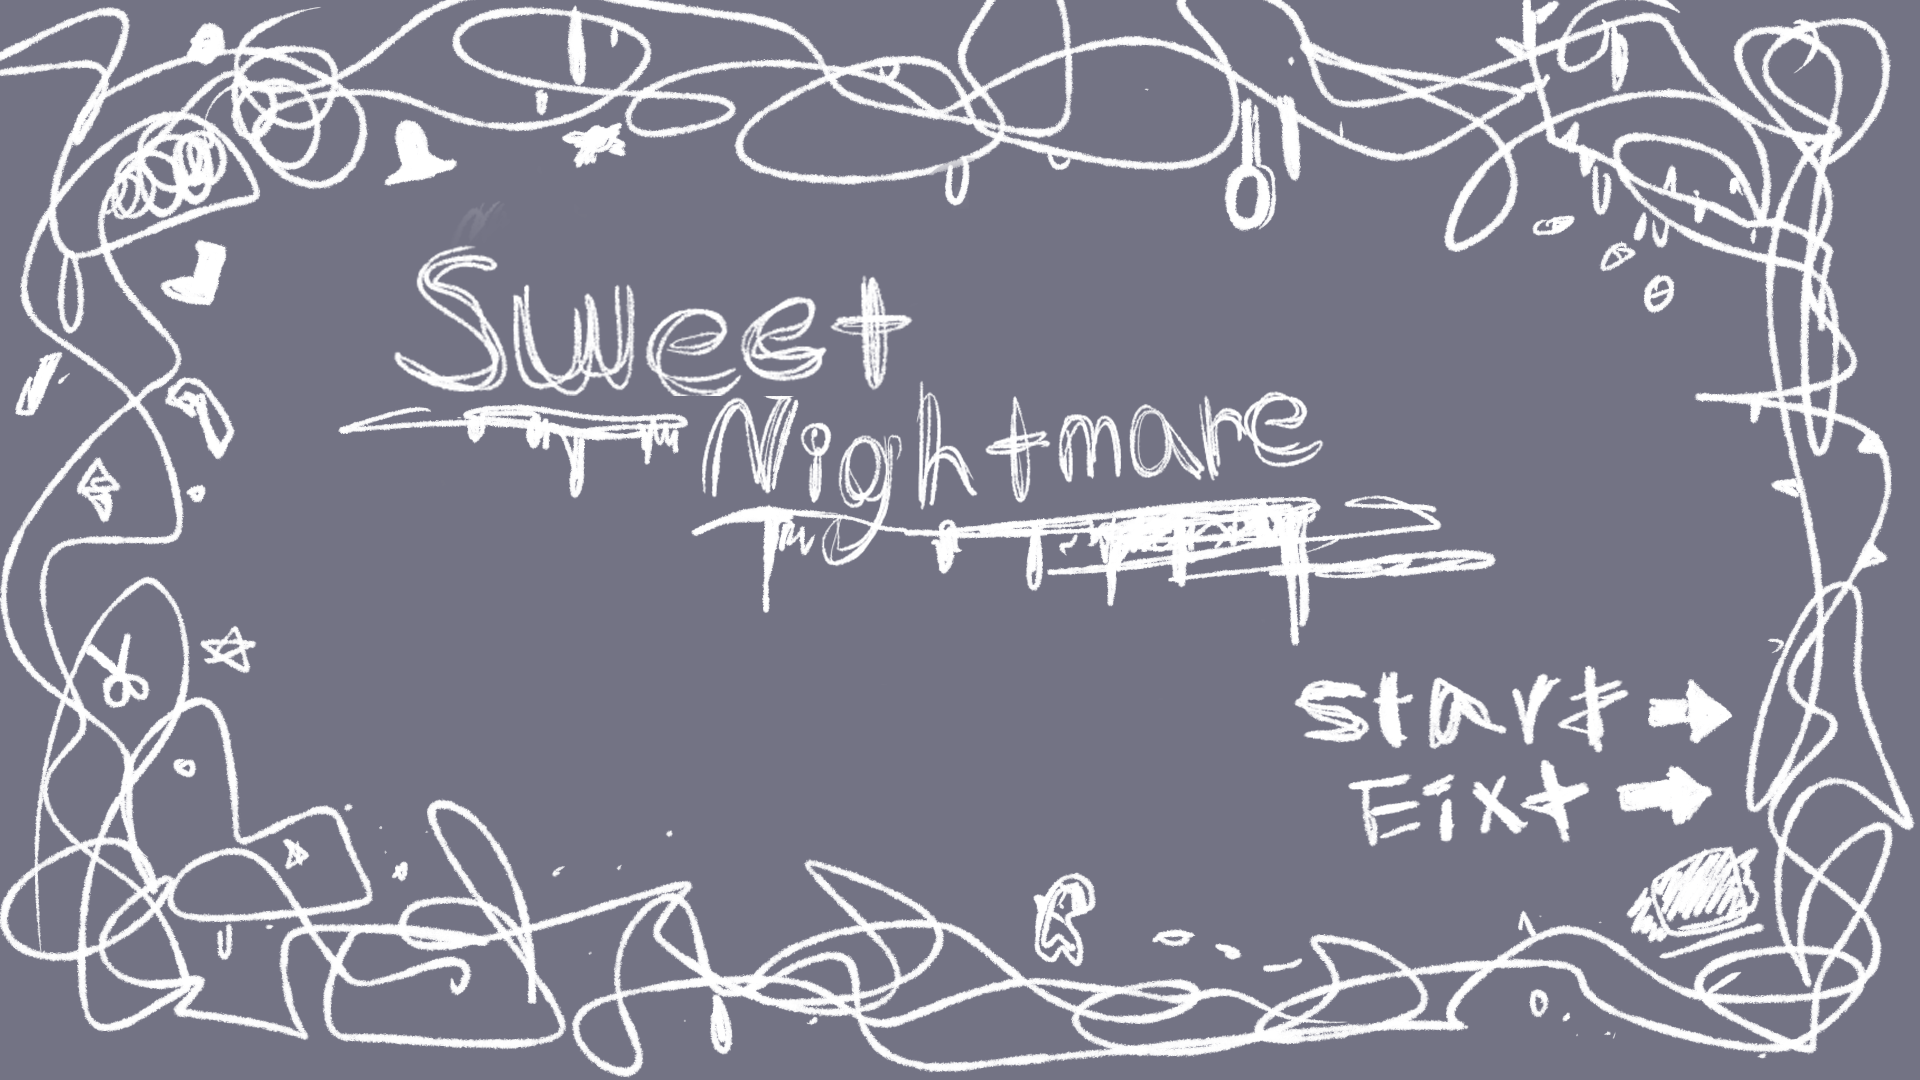 Sweet
Nightmare
start
Eixt